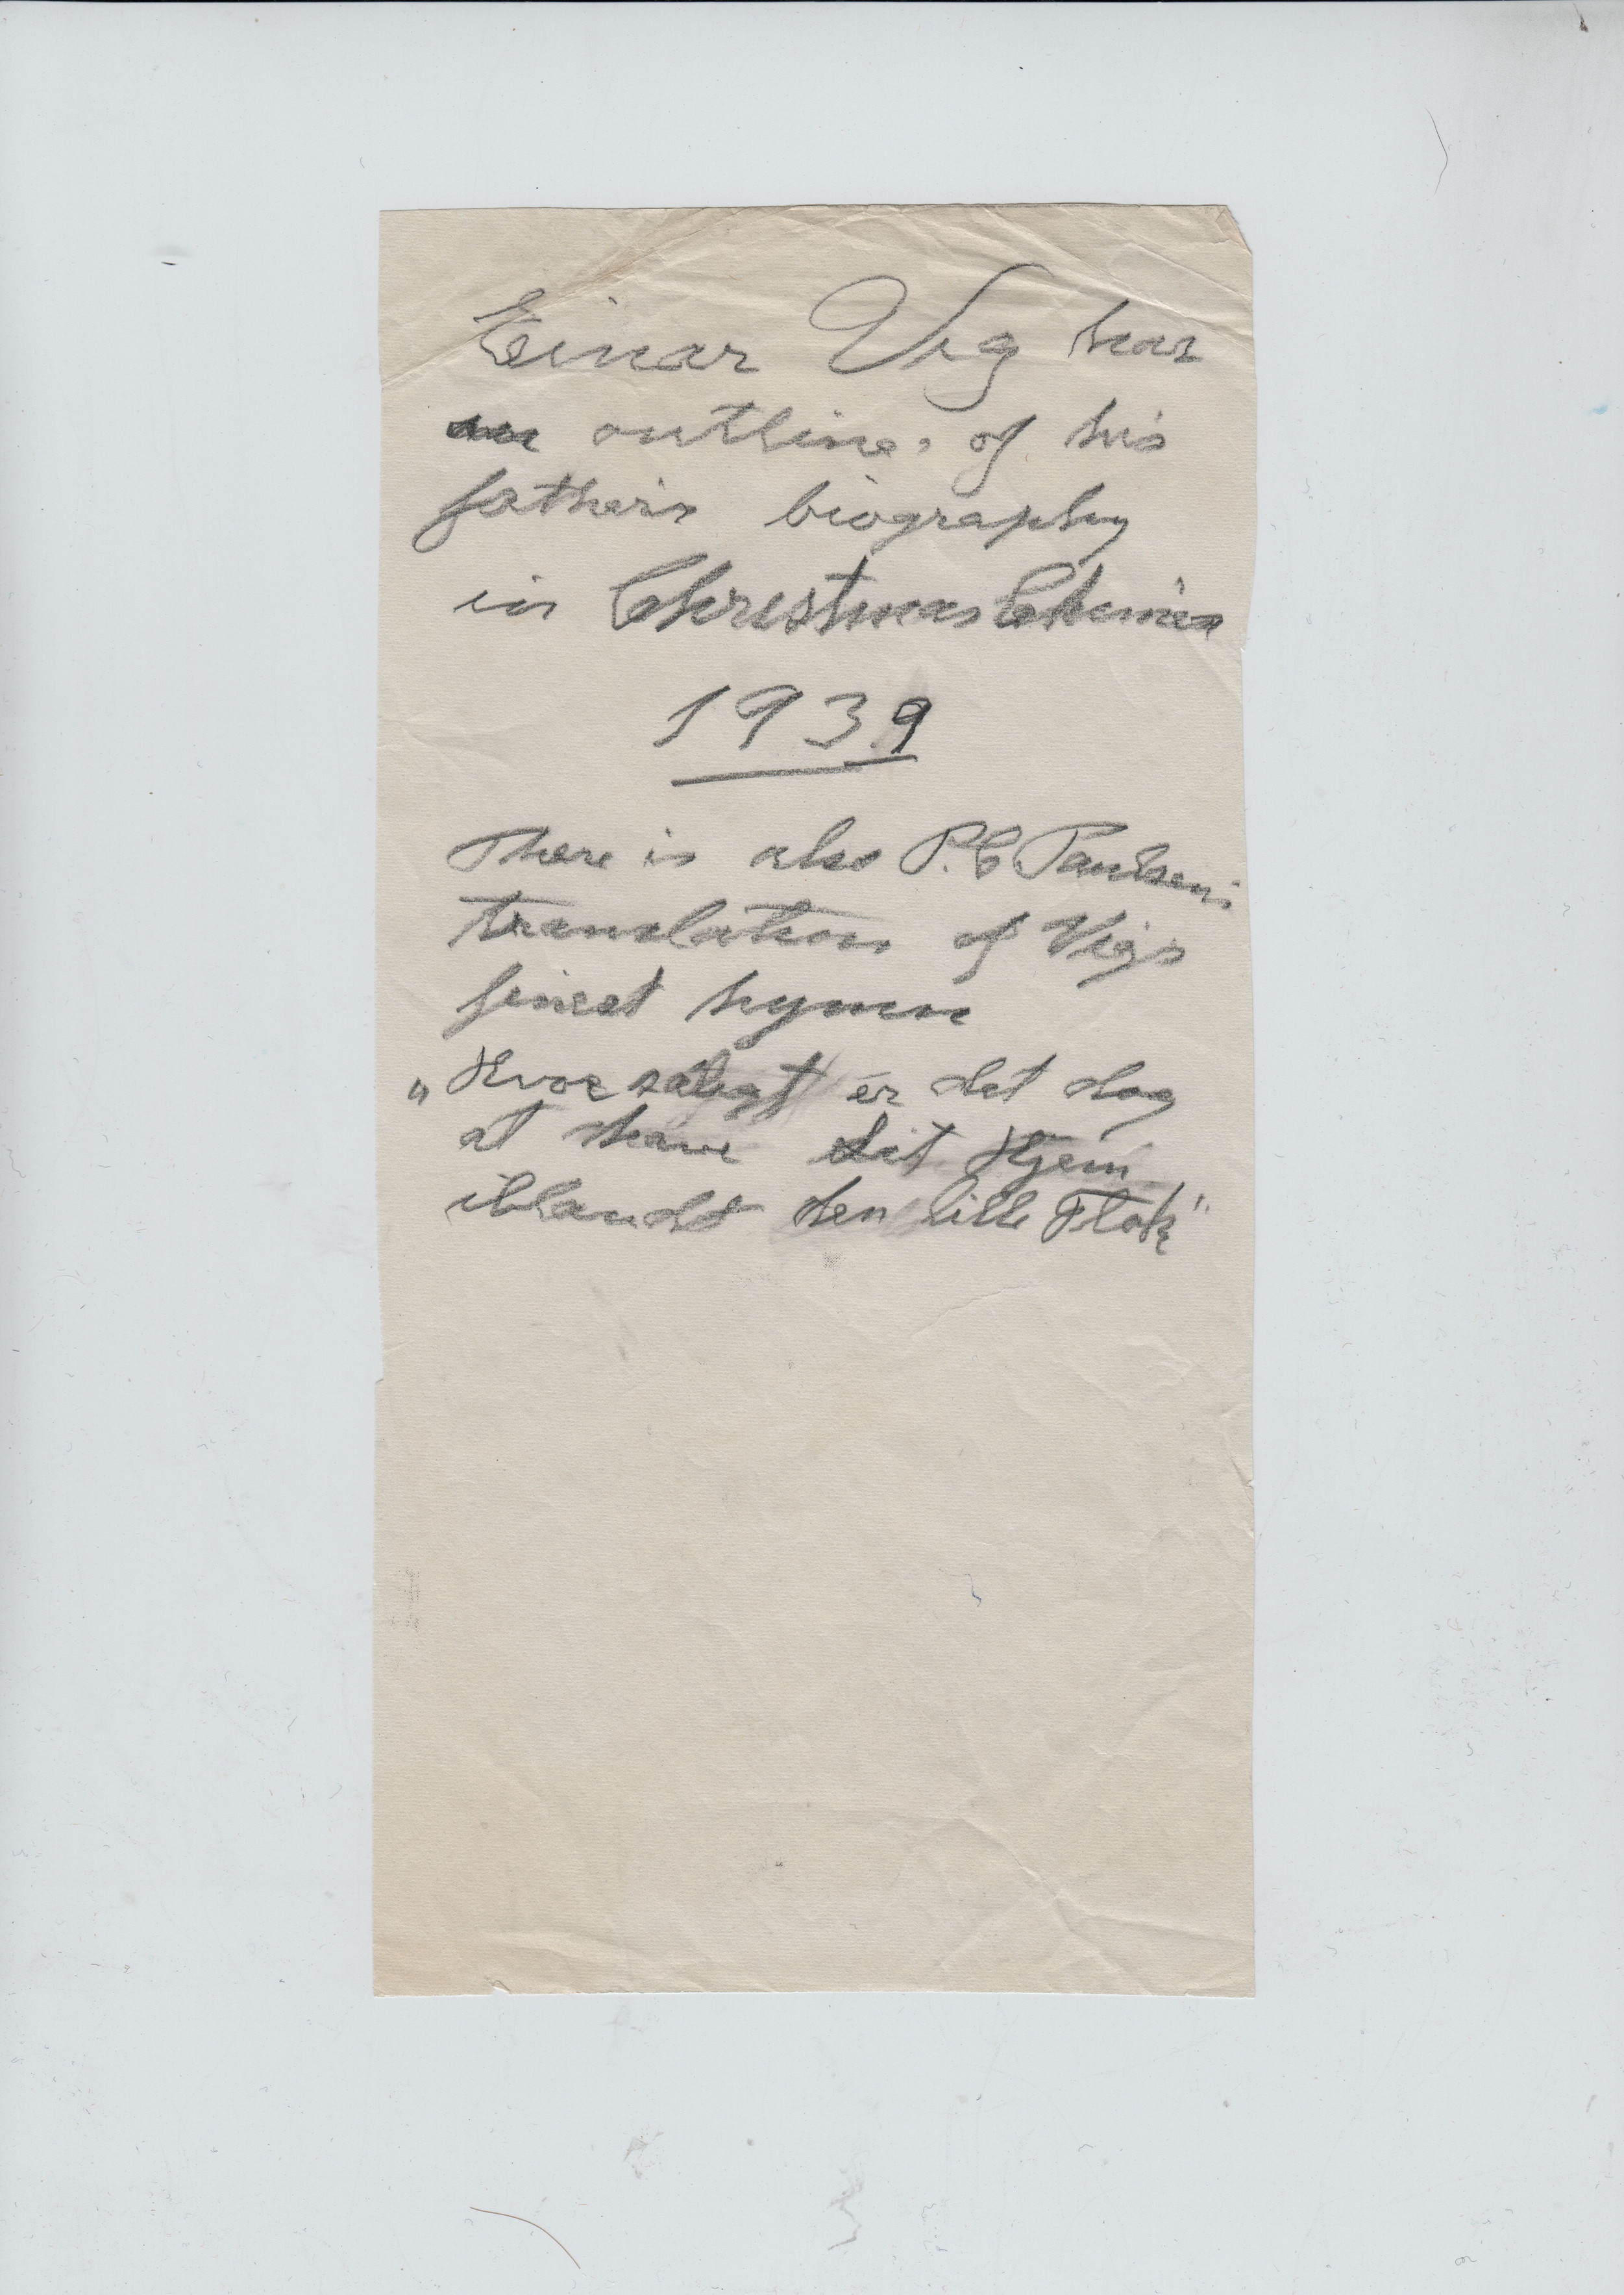 Einar Vig has
an outline, of his
father's biography
in Christmas Chimes
1939
There is also P.C. Paulsen's
translation of Vig's
finest hymn
„Hvor saligt er det dog
at have sit Hjem
iblandt den lille Flok"